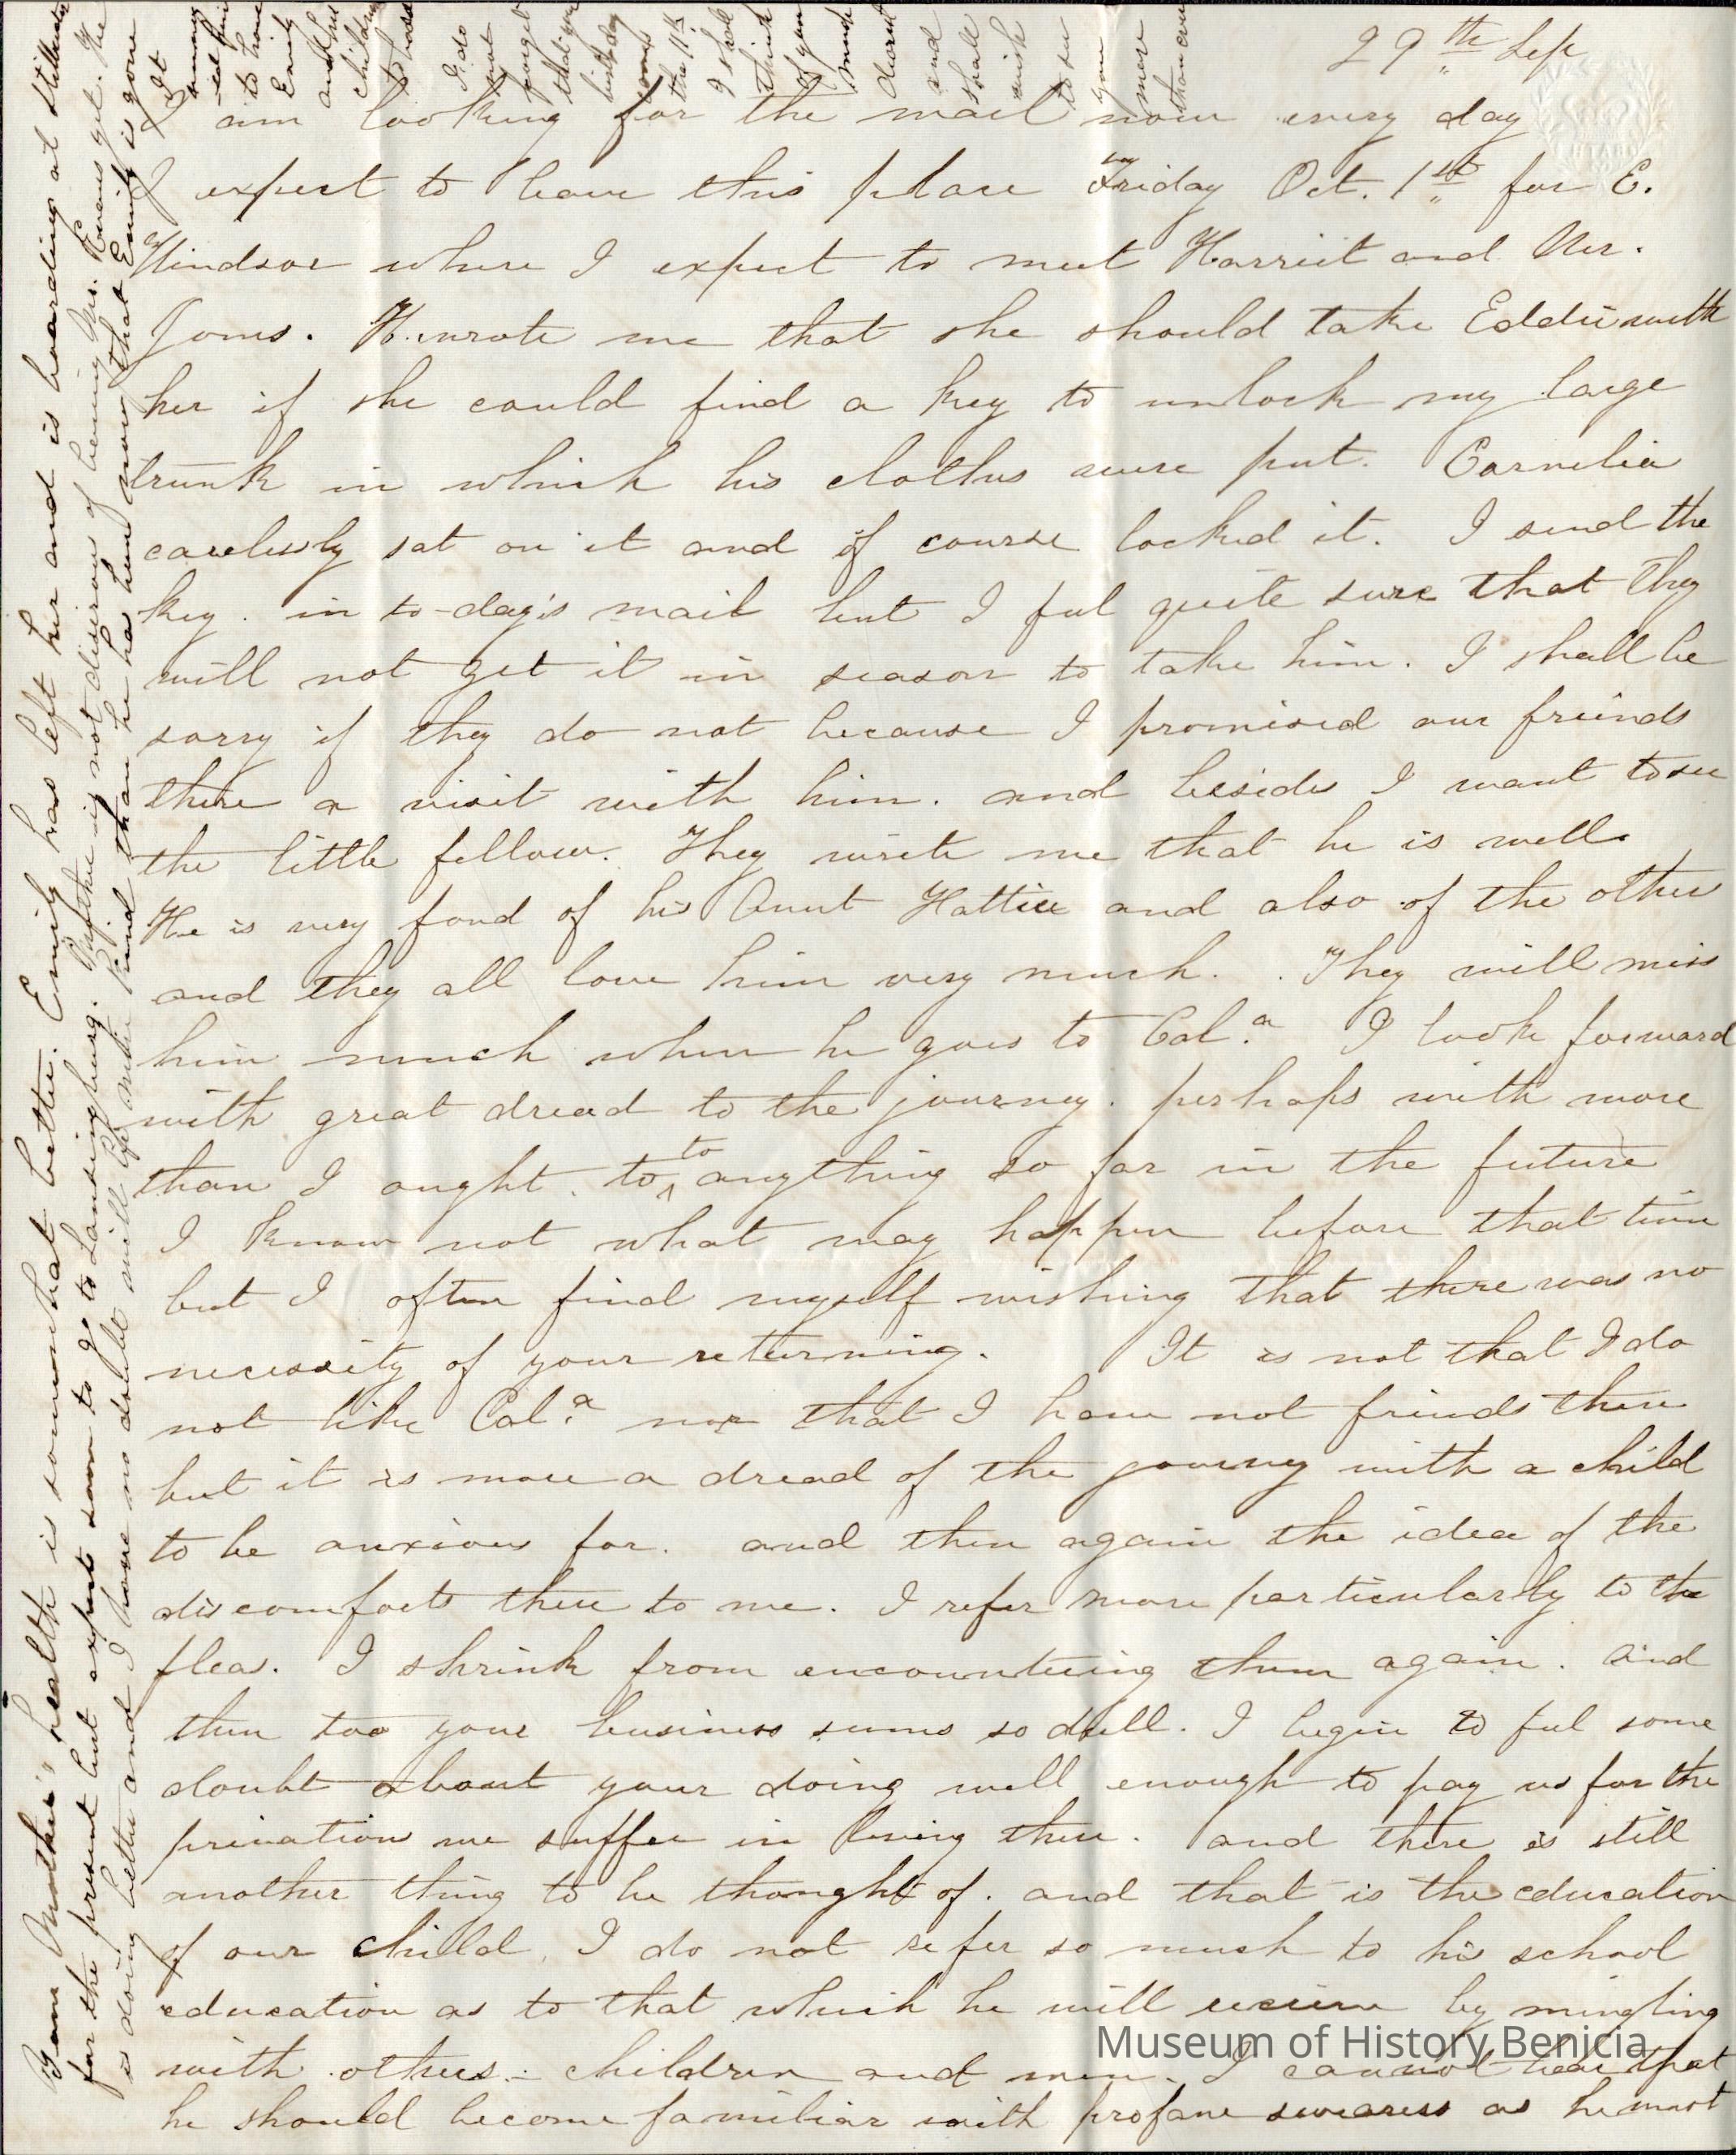 29th Sep
I am looking for the mail now every day
I expect to leave this place Friday Oct. 1st for E.
Windsor where I expect to meet Harriet and Mr.
Jones. H. wrote me that she should take Eddie with
her if she could find a key to unlock my large
trunk in which his clothes were put. Cornelia
carelessly sat on it and of course locked it. I send the
key in to-day's mail but I feel quite sure that they
will not get it in season to take him. I shall be
sorry if they do not because I promised our friends
there a visit with him. and besides I want to see
the little fellow. They write me that he is well.
He is very fond of his Aunt Hattie and also of the other
and they all love him very much. They will miss
him much when he goes to Cal.a I look forward
with great dread to the journey. perhaps with more
than I ought. to to anything so far in the future
I know not what may happen before that time
but I often find myself wishing that there was no
necessity of your returning. It is not that I do
not like Cal.a nor that I have not friends there
but it is more a dread of the journey with a child
to be anxious for. and then again the idea of the
discomforts there to me. I refer more particularly to the
fleas. I shrink from encountering them again. And
then too your business seems so dull. I begin to feel some
doubt about your doing well enough to pay us for the
privation we suffer in living there. and there is still
another thing to be thought of. and that is the education
of our child. I do not refer so much to his school
education as to that which he will receive by mingling
with others. children and men. I cannot bear that
he should become familiar with profane swearers as he must
Your Mother's health is somewhat better. Emily has left her and is boarding at Stillwater
for the present but expects soon to go to Lansingburg. is not desirous of leaving Mr. yet. He
is doing better and I have no doubt will be more kind than he has been now that Emily is gone
It
to have
Emily
and his
children
I do
not
forget
that your
birthday
comes
the 11th
I shall
think
of you
much
dearest
and
shall
wish
to see
you
more
than ever
Museum of History Benicia